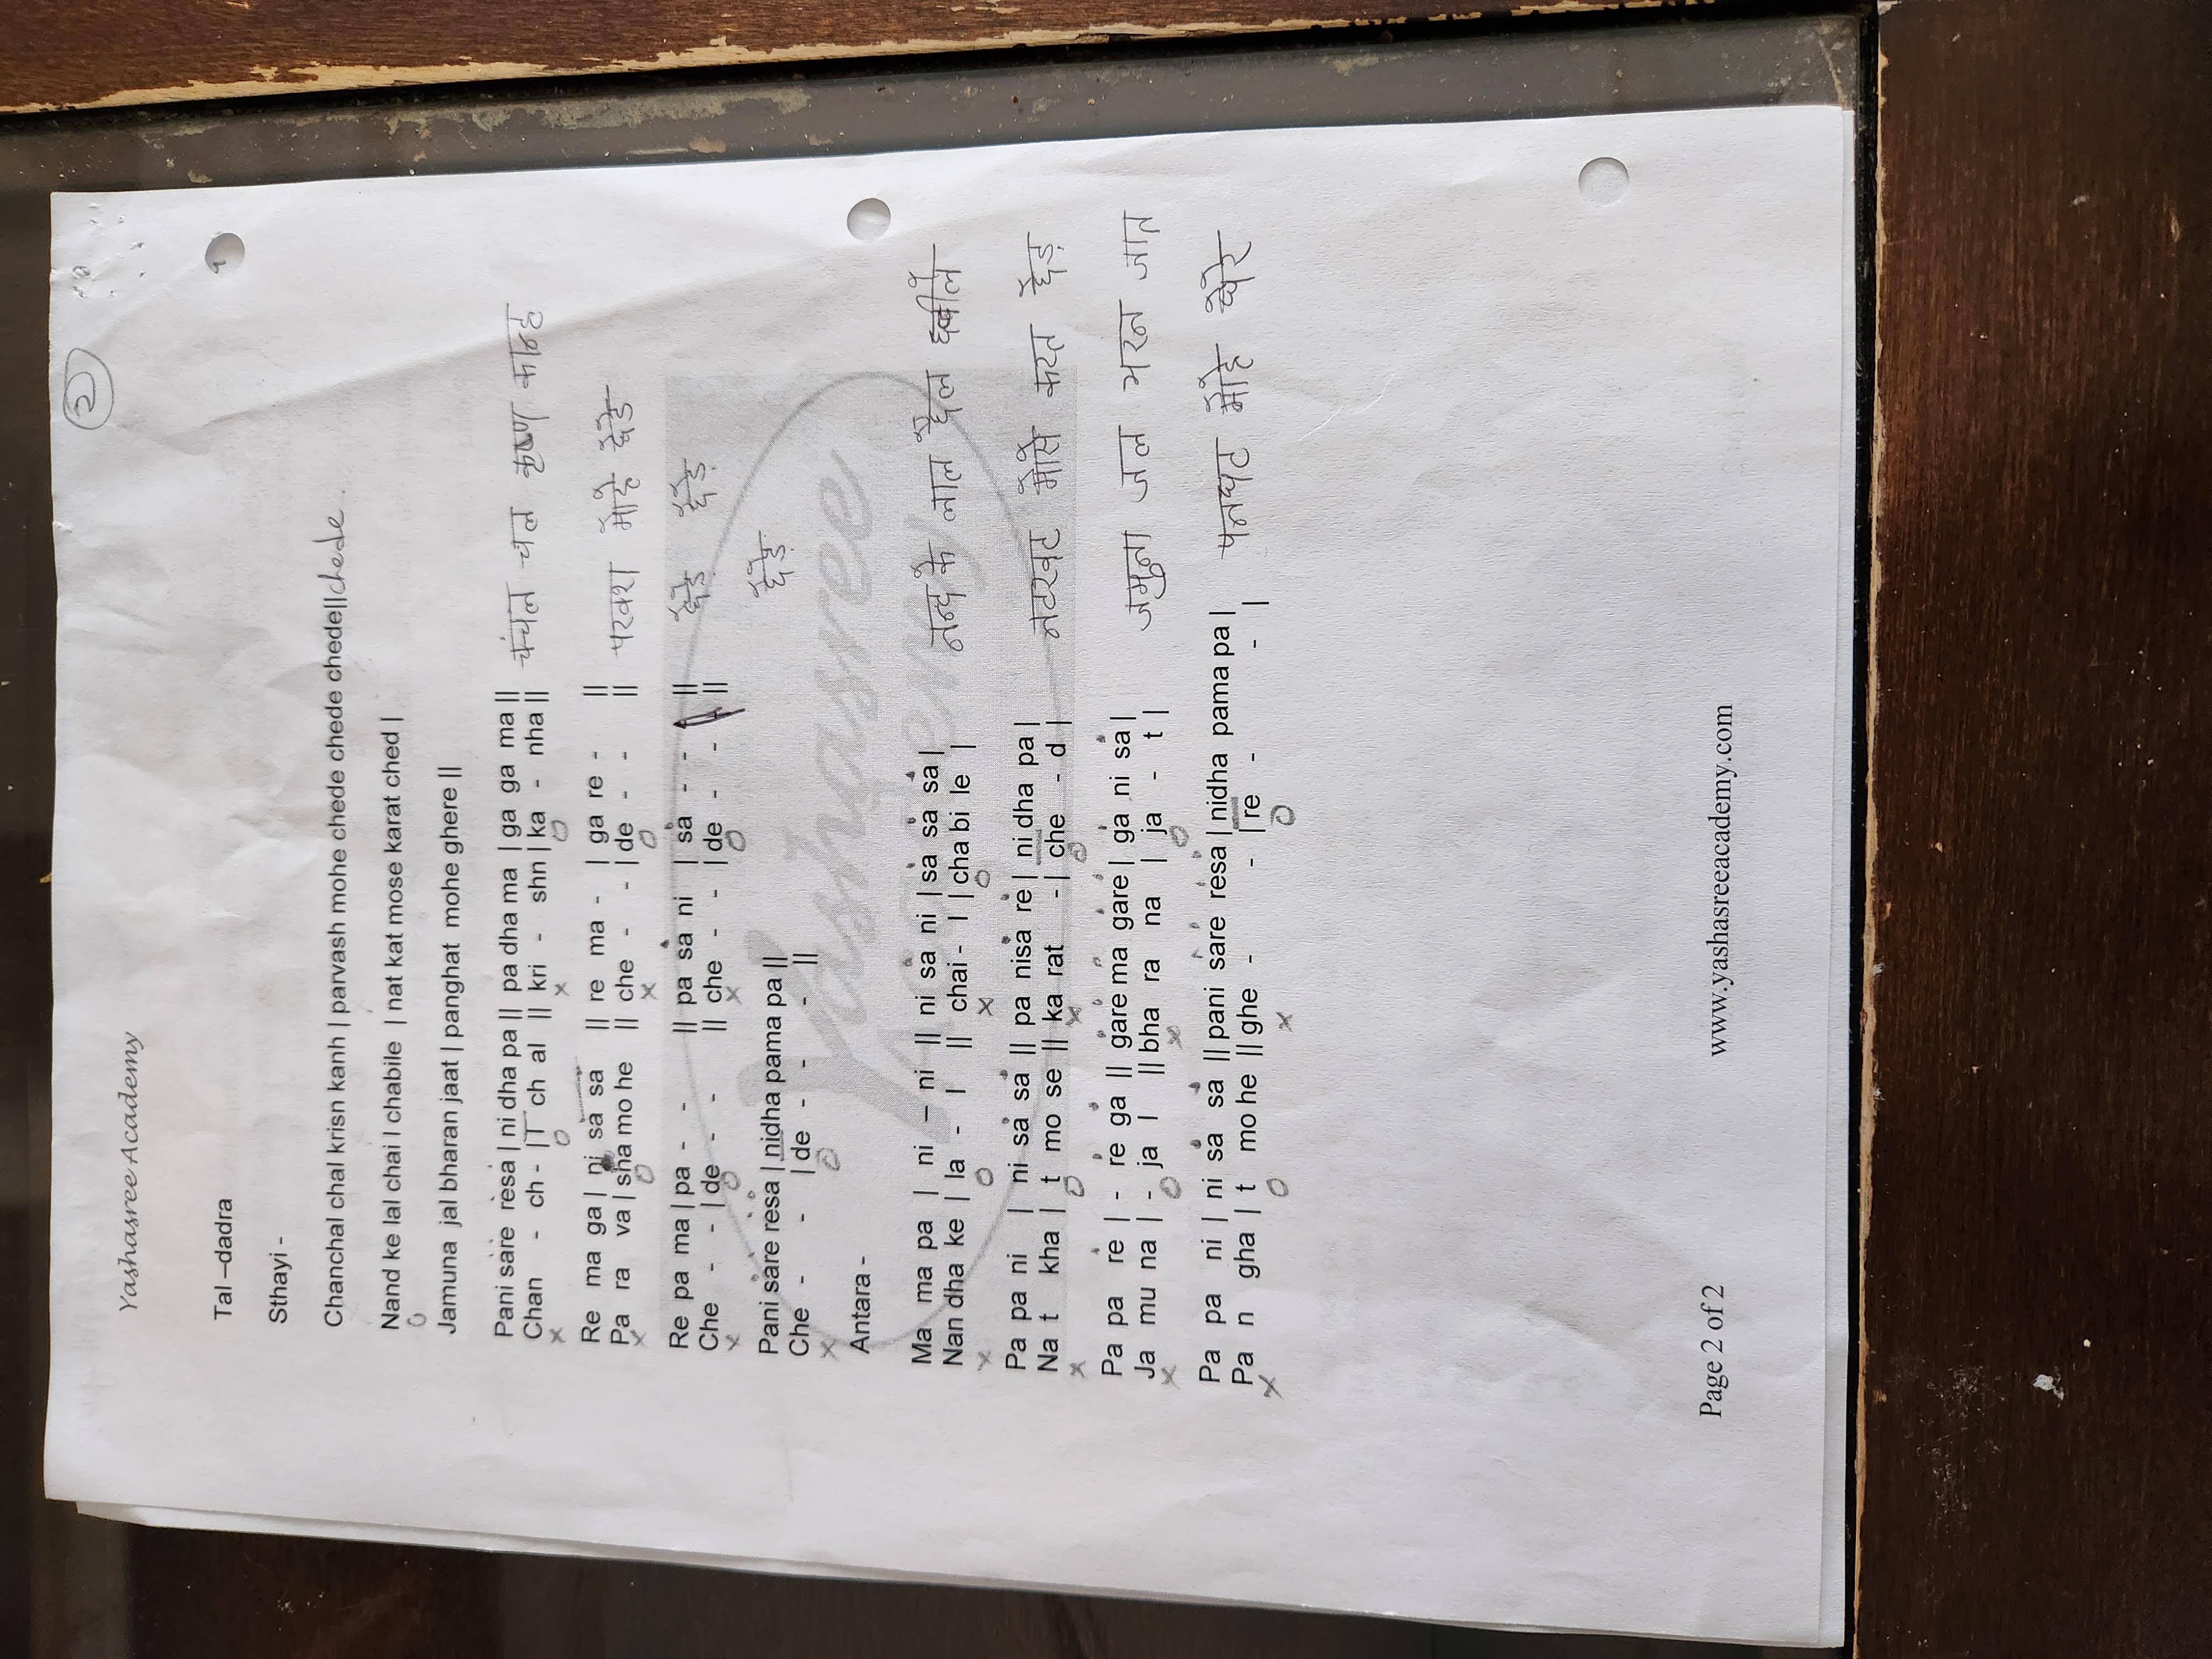 २
Yashasree Academy
Tal –dadra
Sthayi -
Chanchal chal krisn kanh | parvash mohe chede chede chede||chede.
Nand ke lal chai l chabile | nat kat mose karat ched |
Jamuna jal bharan jaat | panghat mohe ghere ||
Pani sare resa | ni dha pa || pa dha ma | ga ga ma || चंचल चल कृष्ण कान्ह
Chan - ch - | T ch al || kri - shn | ka - nha ||
x o x o
Re ma ga | ni sa sa || re ma - | ga re - || परवश मोहे छेडे
Pa ra va | sha mo he || che - - | de - - ||
x o x o
Re pa ma | pa - - || pa sa ni | sa - - || छेड़े छेड़े
Che - - | de - - || che - - | de - - ||
x o x o
Pani sare resa | nidha pama pa || छेड़े
Che - - | de - - ||
x o
Antara -
Ma ma pa | ni – ni || ni sa ni | sa sa sa | नन्द के लाल छैल छबीले
Nan dha ke | la - l || chai - l | cha bi le |
x o x o
Pa pa ni | ni sa sa || pa nisa re | ni dha pa | नटखट मोसे करत छेड़
Na t kha | t mo se || ka rat - | che - d |
x o x o
Pa pa re | - re ga || gare ma gare | ga ni sa | जमुना जल भरन जात
Ja mu na | - ja l || bha ra na | ja - t |
x o x o
Pa pa ni | ni sa sa || pani sare resa | nidha pama pa | पनघट मोहे घेरे
Pa n gha | t mo he || ghe - - | re - - |
x o x o
Yashasree Academy
Page 2 of 2 www.yashasreeacademy.com